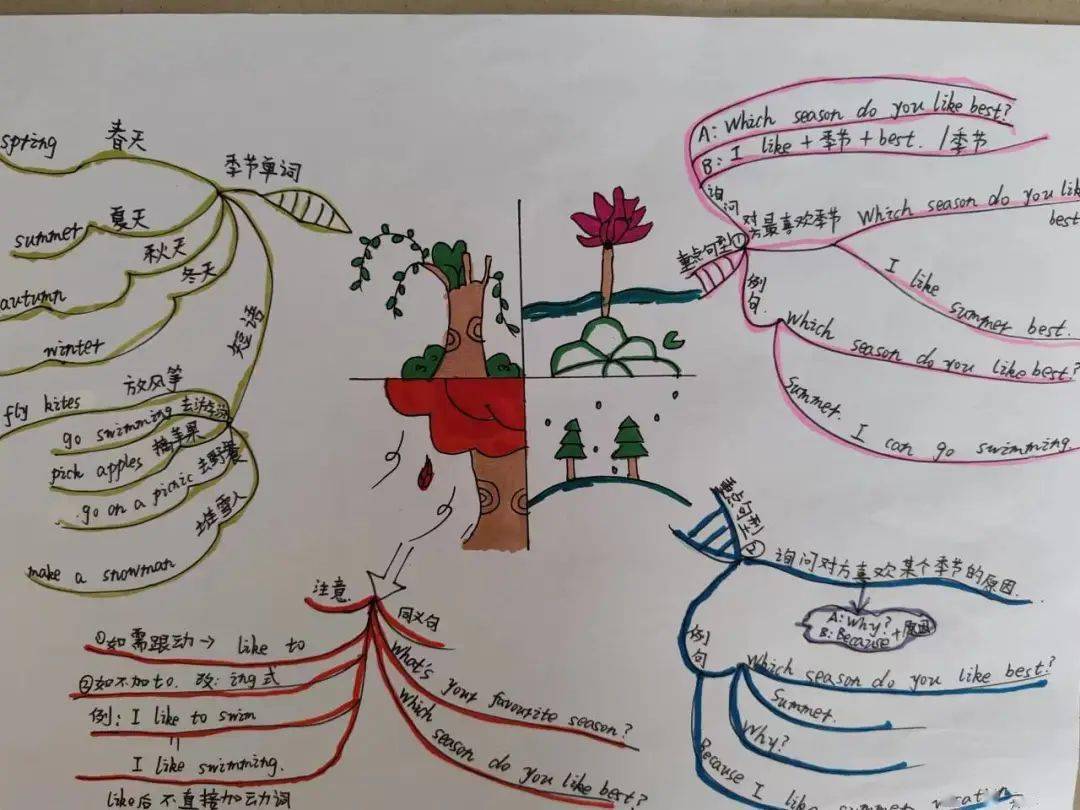 季节单词
spring 春天
summer 夏天
autumn 秋天
winter 冬天
短语
fly kites 放风筝
go swimming 去游泳
pick apples 摘苹果
go on a picnic 去野餐
make a snowman 堆雪人
重点句型①
询问对方最喜欢季节
A: Which season do you like best?
B: I like + 季节 + best. /季节
Which season do you like
best?
I like summer best.
例句
Which season do you like best?
Summer.
I can go swimming.
重点句型②
询问对方喜欢某个季节的原因.
A: Why?
B: Because + 原因
例句
Which season do you like best?
Summer.
Why?
Because I like summer
注意
①如需跟动→ like to
②如不加to. 改: ing式
例: I like to swim
||
I like swimming.
like后不直接加动词
同义句
What's your favourite season?
Which season do you like best?